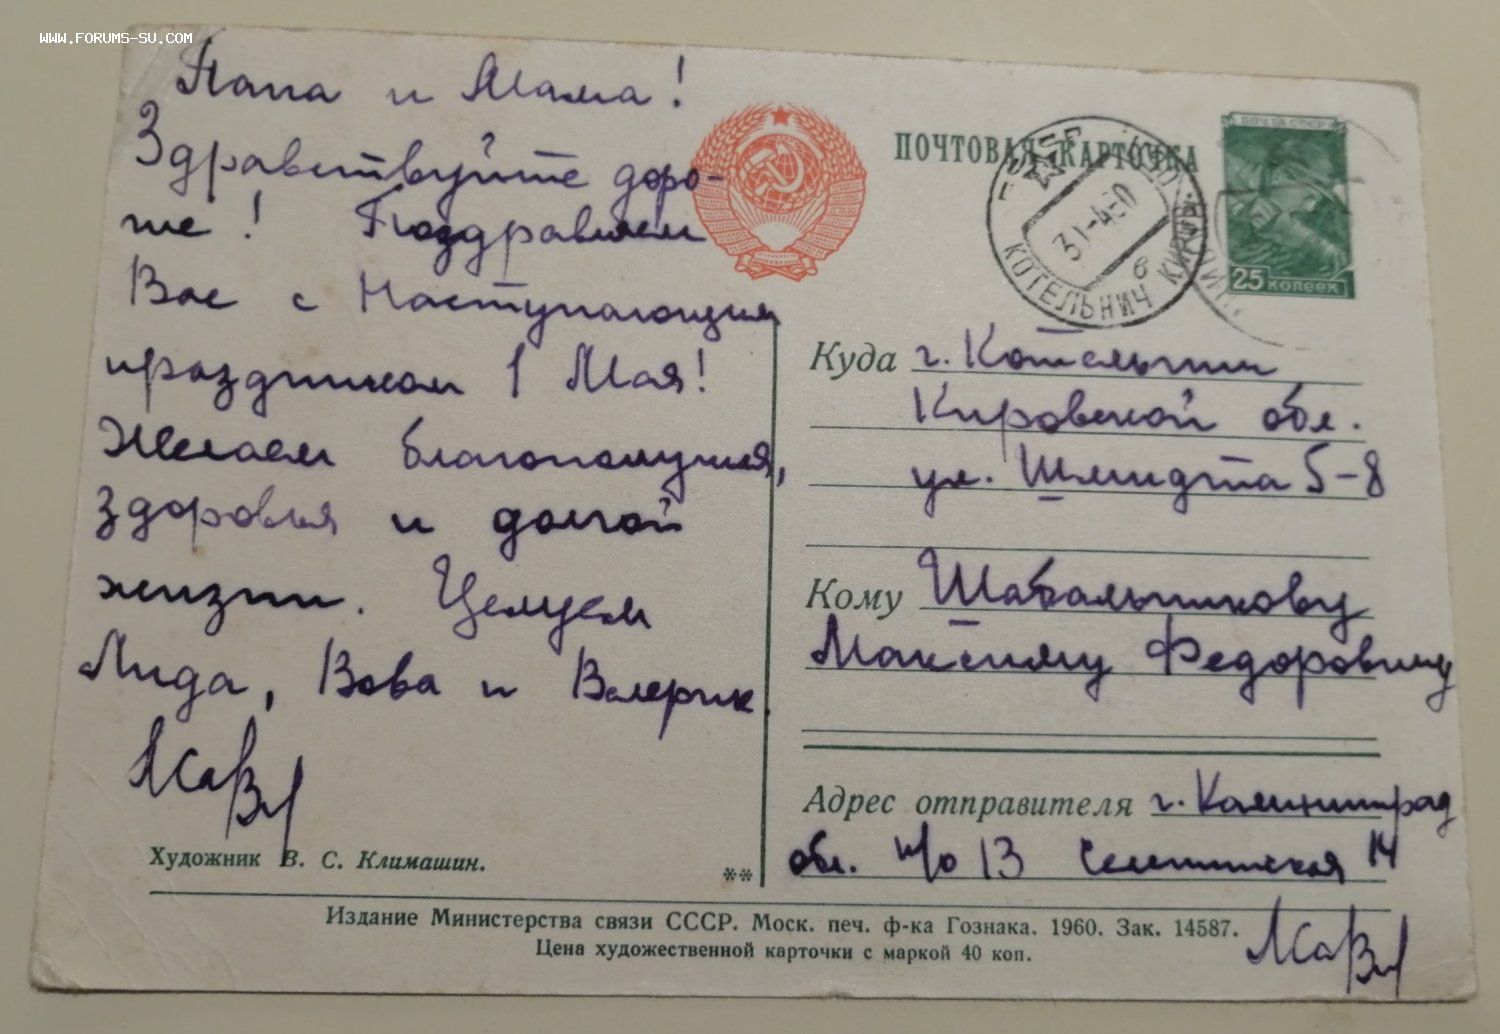 WWW.FORUMS-SU.COM
Папа и Мама!
Здравствуйте доро-
гие! Поздравляем
Вас с Наступающим
праздником 1 Мая!
Желаем благополучия,
здоровья и долгой
жизни. Целуем
Лида, Вова и Валерик.
Художник В. С. Климашин.
ПОЧТОВАЯ КАРТОЧКА
ПОЧТА СССР
25 КОПЕЕК
КОТЕЛЬНИЧ КИРОВ.
Куда г. Котельнич
Кировской обл.
ул. Шмидта 5-8
Кому Шабальникову
Максиму Федоровичу
Адрес отправителя г. Калининград
обл. п/о 13 14
**
Издание Министерства связи СССР. Моск. печ. ф-ка Гознака. 1960. Зак. 14587.
Цена художественной карточки с маркой 40 коп.